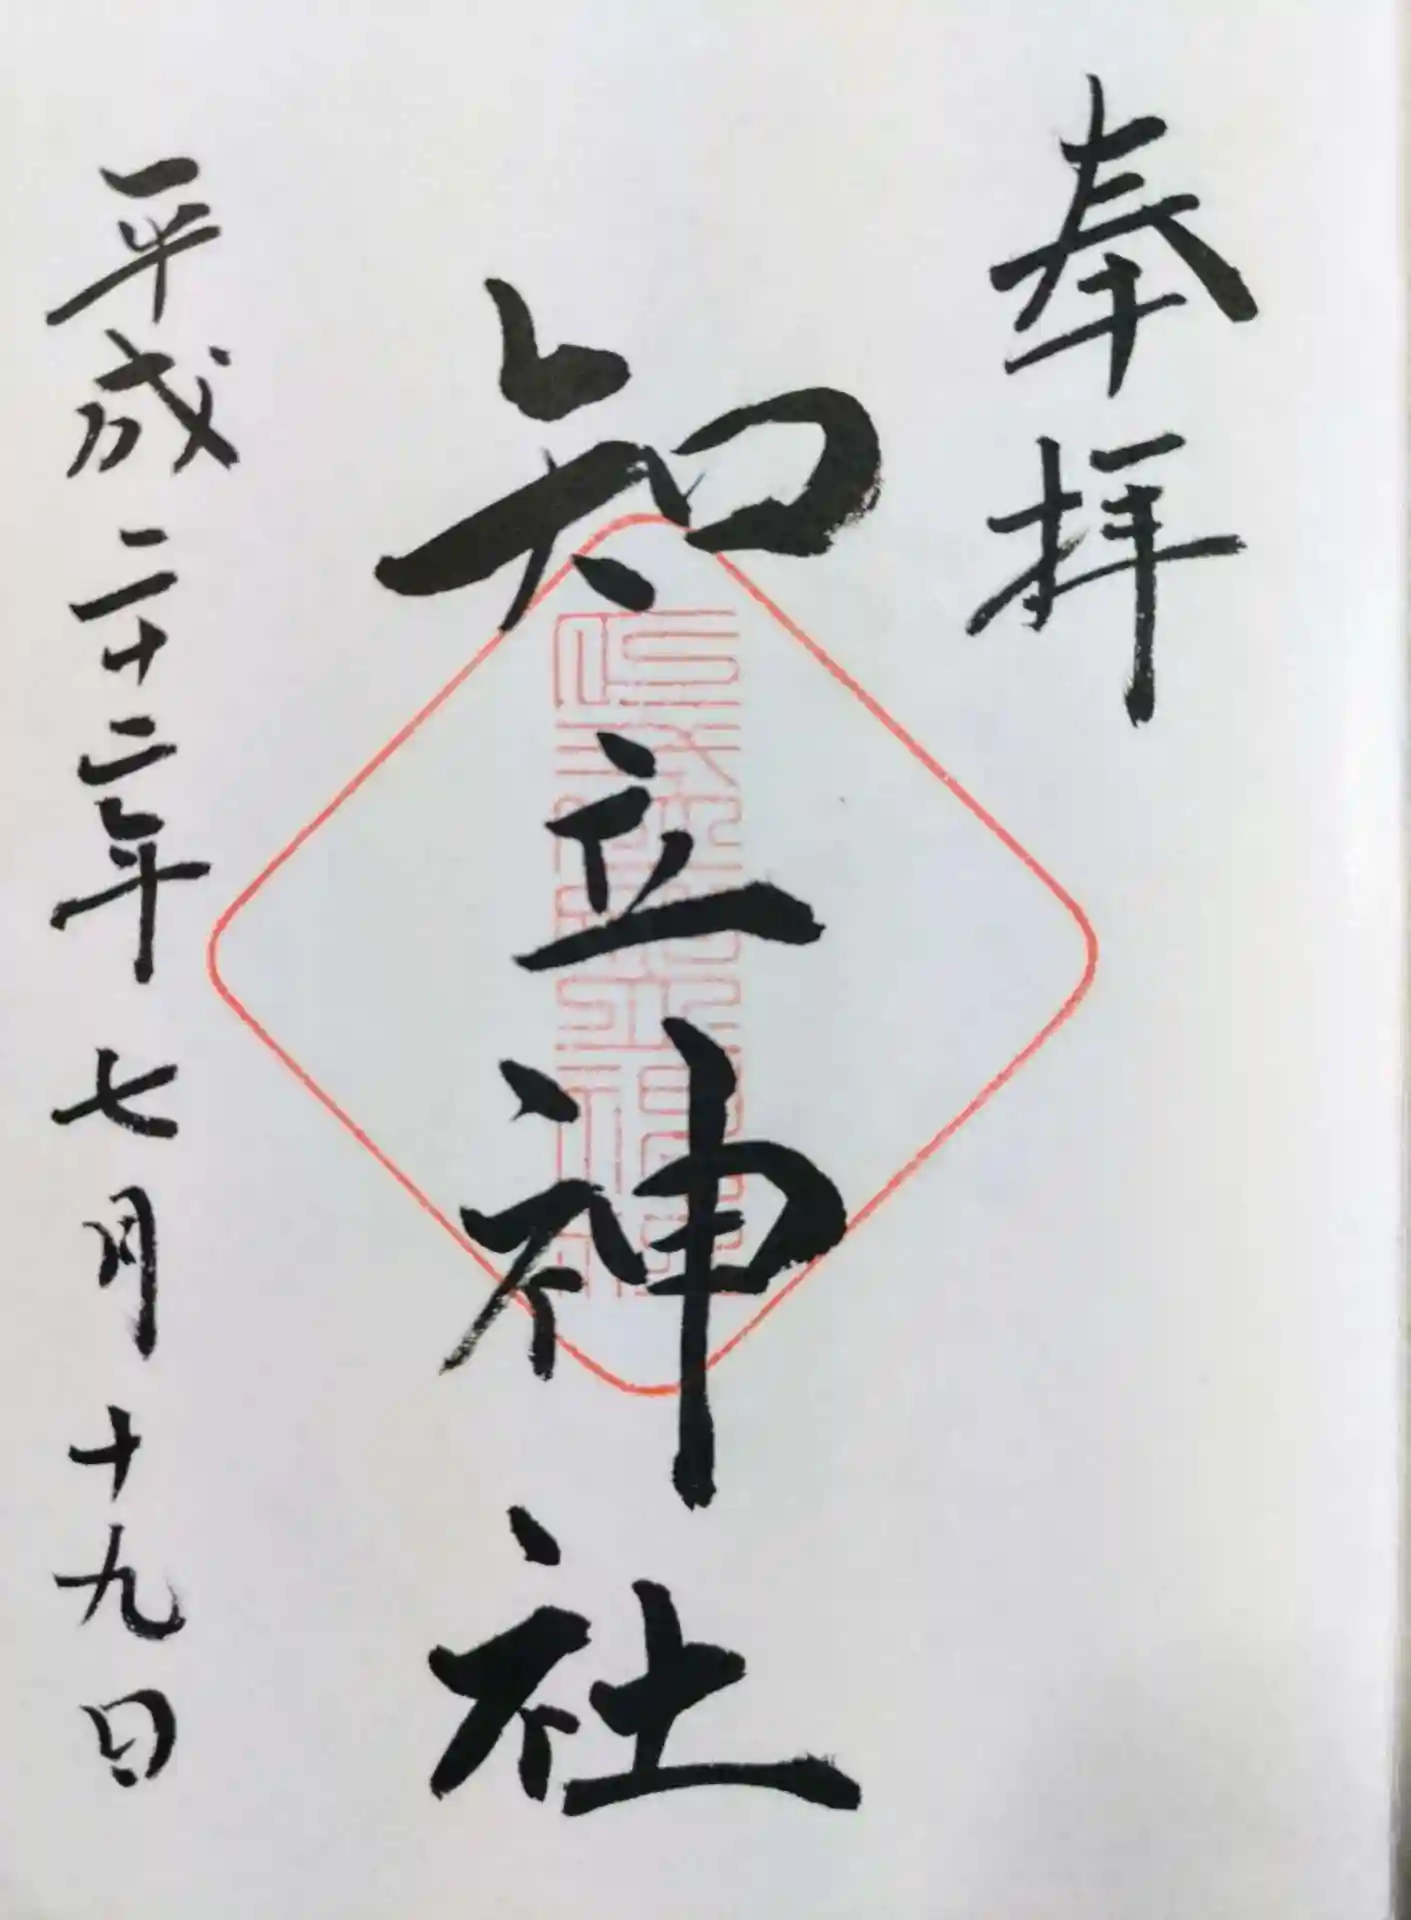 奉拝
知立神社
平成二十二年七月十九日